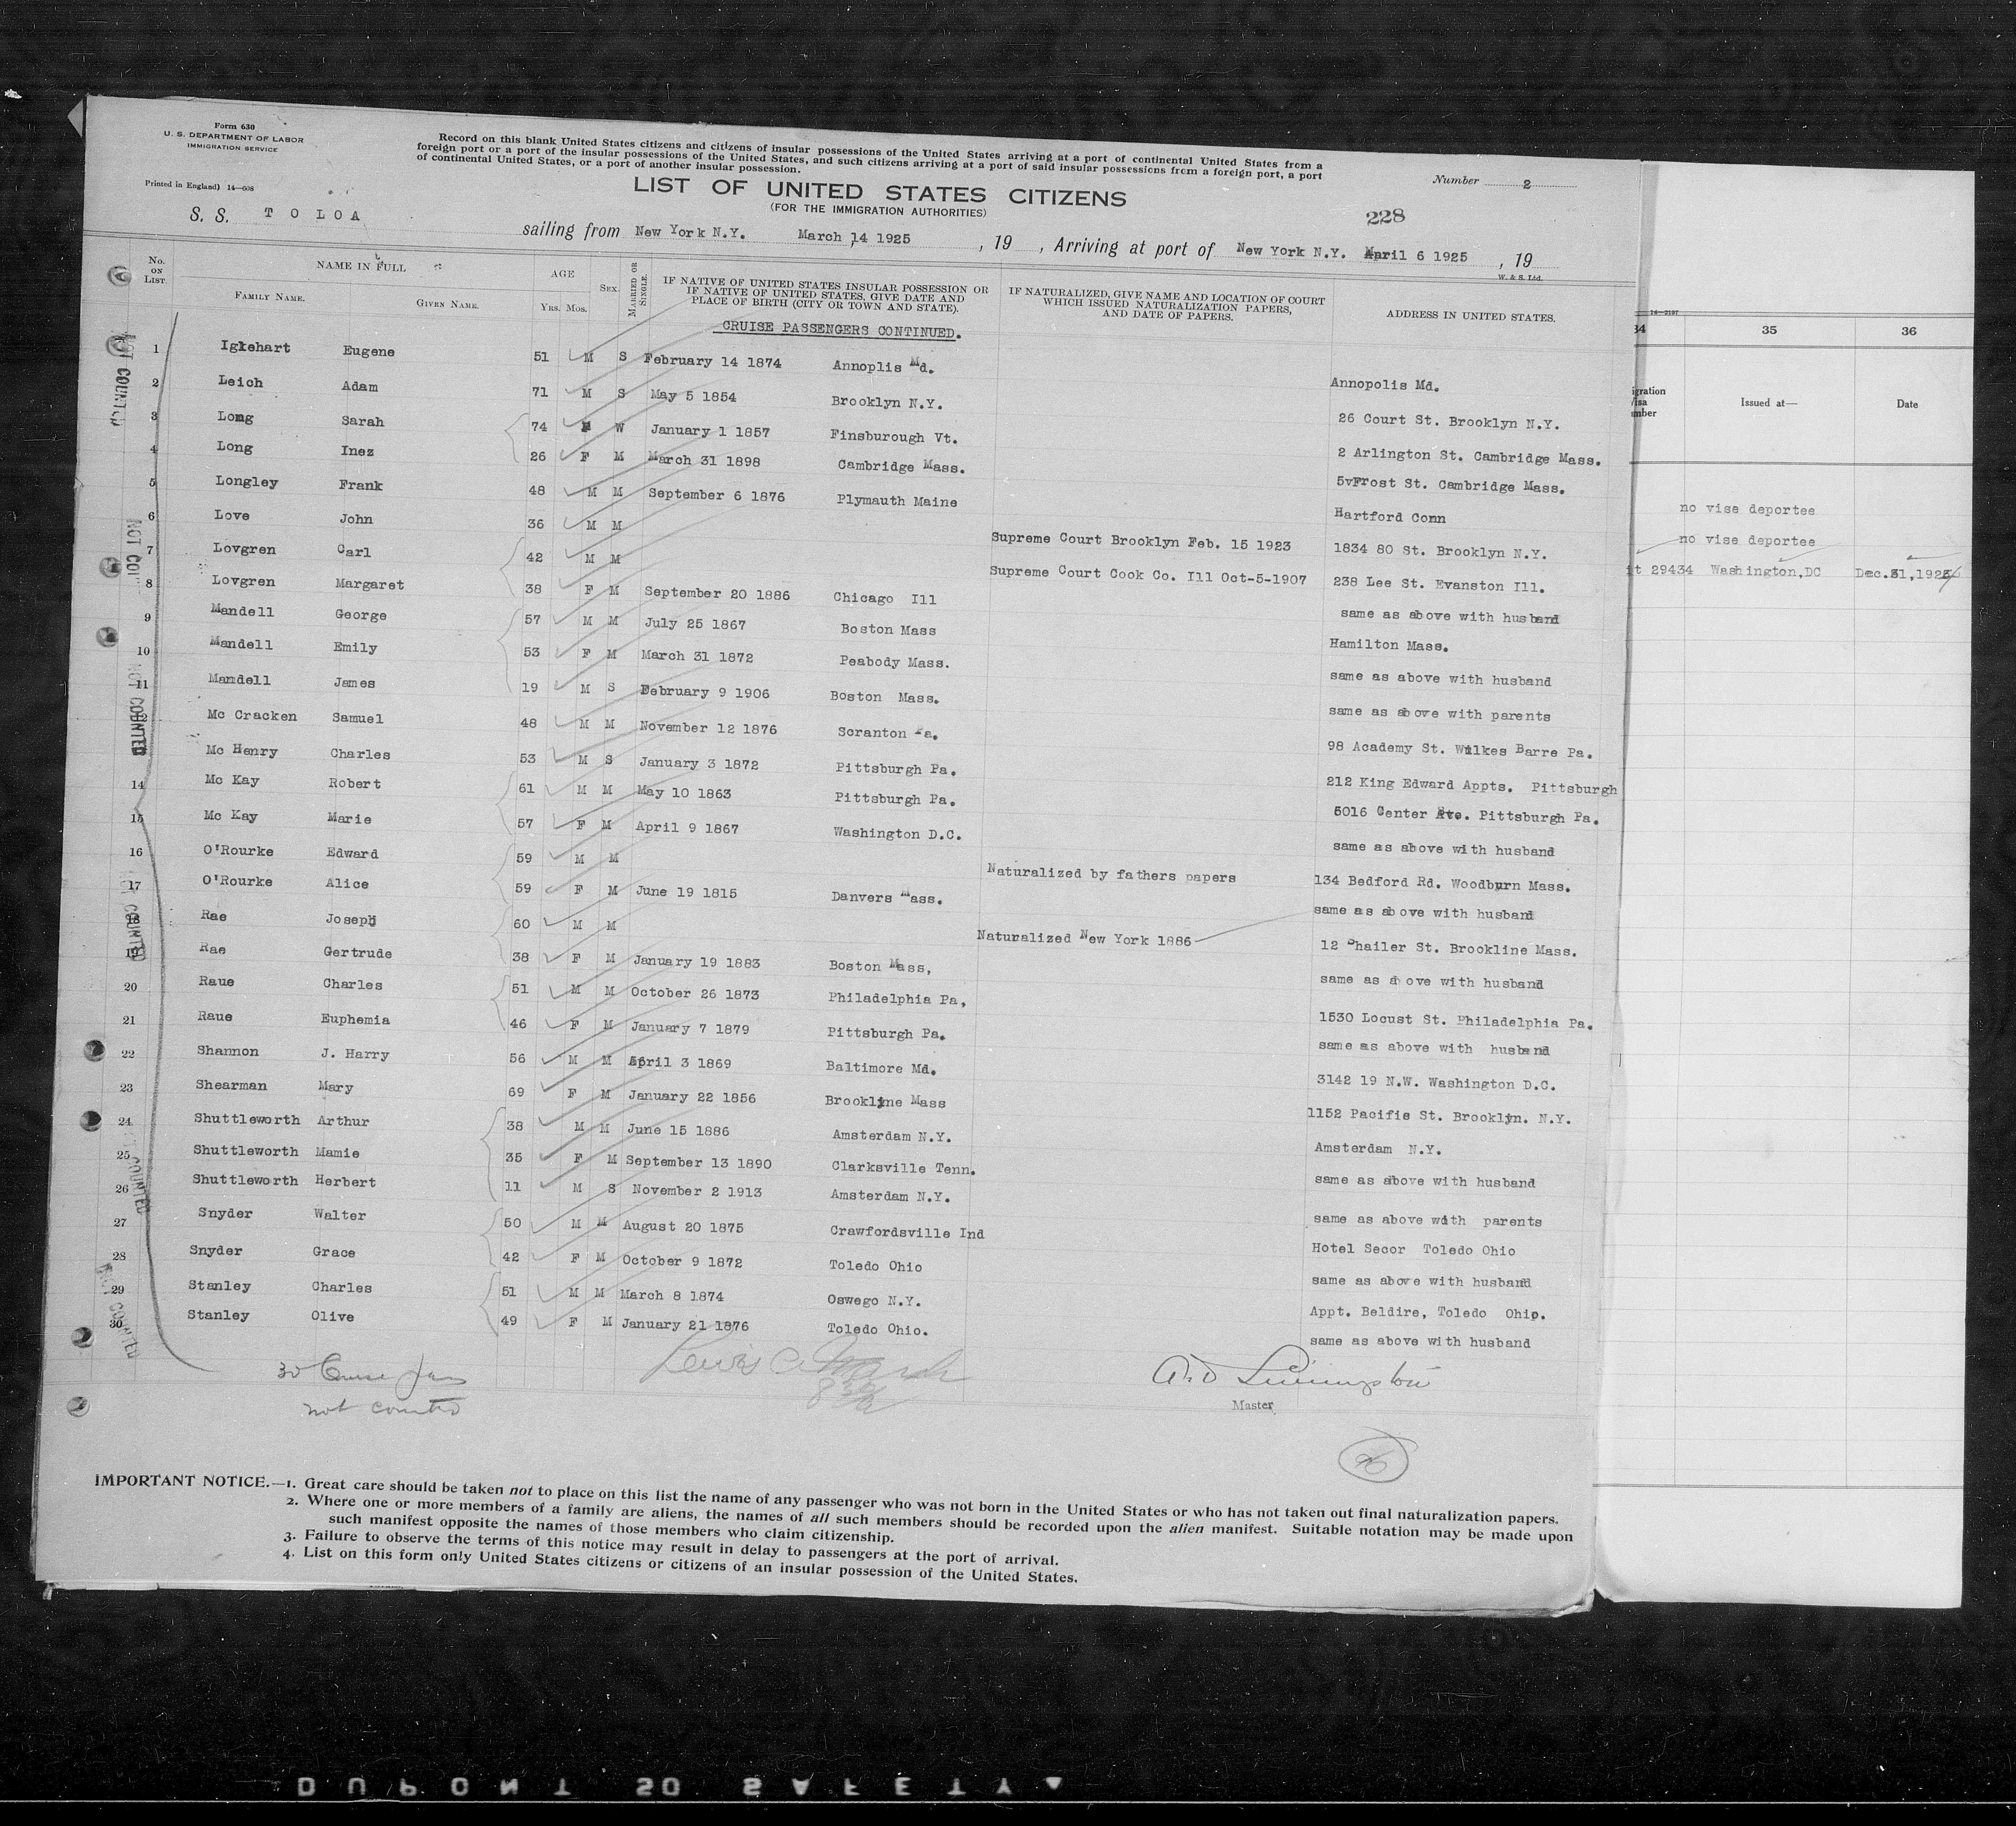 Form 630
U. S. DEPARTMENT OF LABOR
IMMIGRATION SERVICE
Printed in England) 14—608
Record on this blank United States citizens and citizens of insular possessions of the United States arriving at a port of continental United States from a
foreign port or a port of the insular possessions of the United States, and such citizens arriving at a port of said insular possessions from a foreign port, a port
of continental United States, or a port of another insular possession.
Number 2
LIST OF UNITED STATES CITIZENS
(FOR THE IMMIGRATION AUTHORITIES)
228
S. S. TOLOA sailing from New York N.Y. March 14 1925, 19 , Arriving at port of New York N.Y. April 6 1925, 19
W. & S. Ltd.
No. ON LIST. NAME IN FULL AGE SEX. MARRIED OR SINGLE. IF NATIVE OF UNITED STATES INSULAR POSSESSION OR IF NATIVE OF UNITED STATES, GIVE DATE AND PLACE OF BIRTH (CITY OR TOWN AND STATE). IF NATURALIZED, GIVE NAME AND LOCATION OF COURT WHICH ISSUED NATURALIZATION PAPERS, AND DATE OF PAPERS. ADDRESS IN UNITED STATES.
FAMILY NAME. GIVEN NAME. Yrs. Mos.
CRUISE PASSENGERS CONTINUED.
1 Iglehart Eugene 51 M S February 14 1874 Annoplis Md. Annopolis Md.
2 Leich Adam 71 M S May 5 1854 Brooklyn N.Y. 26 Court St. Brooklyn N.Y.
3 Long Sarah 74 W January 1 1857 Finsburough Vt. 2 Arlington St. Cambridge Mass.
4 Long Inez 26 F M March 31 1898 Cambridge Mass. 5vFrost St. Cambridge Mass.
5 Longley Frank 48 M M September 6 1876 Plymauth Maine Hartford Conn
6 Love John 36 M M Supreme Court Brooklyn Feb. 15 1923 1834 80 St. Brooklyn N.Y.
7 Lovgren Carl 42 M M Supreme Court Cook Co. Ill Oct-5-1907 238 Lee St. Evanston Ill.
8 Lovgren Margaret 38 F M September 20 1886 Chicago Ill same as above with husband
9 Mandell George 57 M M July 25 1867 Boston Mass Hamilton Mass.
10 Mandell Emily 53 F M March 31 1872 Peabody Mass. same as above with husband
11 Mandell James 19 M S February 9 1906 Boston Mass. same as above with parents
12 Mc Cracken Samuel 48 M M November 12 1876 Scranton Pa. 98 Academy St. Wilkes Barre Pa.
Mc Henry Charles 53 M S January 3 1872 Pittsburgh Pa. 212 King Edward Appts. Pittsburgh
14 Mc Kay Robert 61 M M May 10 1863 Pittsburgh Pa. 5016 Center Ave. Pittsburgh Pa.
15 Mc Kay Marie 57 F M April 9 1867 Washington D.C. same as above with husband
16 O'Rourke Edward 59 M M Naturalized by fathers papers 134 Bedford Rd. Woodburn Mass.
17 O'Rourke Alice 59 F M June 19 1815 Danvers Mass. same as above with husband
18 Rae Joseph 60 M M Naturalized New York 1886 12 Shailer St. Brookline Mass.
19 Rae Gertrude 38 F M January 19 1883 Boston Mass, same as above with husband
20 Raue Charles 51 M M October 26 1873 Philadelphia Pa, 1530 Locust St. Philadelphia Pa.
21 Raue Euphemia 46 F M January 7 1879 Pittsburgh Pa. same as above with husband
22 Shannon J. Harry 56 M M April 3 1869 Baltimore Md. 3142 19 N.W. Washington D.C.
23 Shearman Mary 69 F M January 22 1856 Brookline Mass 1152 Pacifis St. Brooklyn. N.Y.
24 Shuttleworth Arthur 38 M M June 15 1886 Amsterdam N.Y. Amsterdam N.Y.
25 Shuttleworth Mamie 35 F M September 13 1890 Clarksville Tenn. same as above with husband
26 Shuttleworth Herbert 11 M S November 2 1913 Amsterdam N.Y. same as above with parents
27 Snyder Walter 50 M M August 20 1875 Crawfordsville Ind Hotel Secor Toledo Ohio
28 Snyder Grace 42 F M October 9 1872 Toledo Ohio same as above with husband
29 Stanley Charles 51 M M March 8 1874 Oswego N.Y. Appt. Beldire, Toledo Ohio.
30 Stanley Olive 49 F M January 21 1876 Toledo Ohio. same as above with husband
NOT COUNTED
NOT COUNTED
NOT COUNTED
NOT COUNTED
NOT COUNTED
34 35 36
Issued at— Date
no vise deportee
no vise deportee
29434 Washington,DC Dec.31,192
30 Cruise
not counted
Master
IMPORTANT NOTICE.—1. Great care should be taken not to place on this list the name of any passenger who was not born in the United States or who has not taken out final naturalization papers.
2. Where one or more members of a family are aliens, the names of all such members should be recorded upon the alien manifest. Suitable notation may be made upon
such manifest opposite the names of those members who claim citizenship.
3. Failure to observe the terms of this notice may result in delay to passengers at the port of arrival.
4. List on this form only United States citizens or citizens of an insular possession of the United States.
DUPONT SO SAFETY